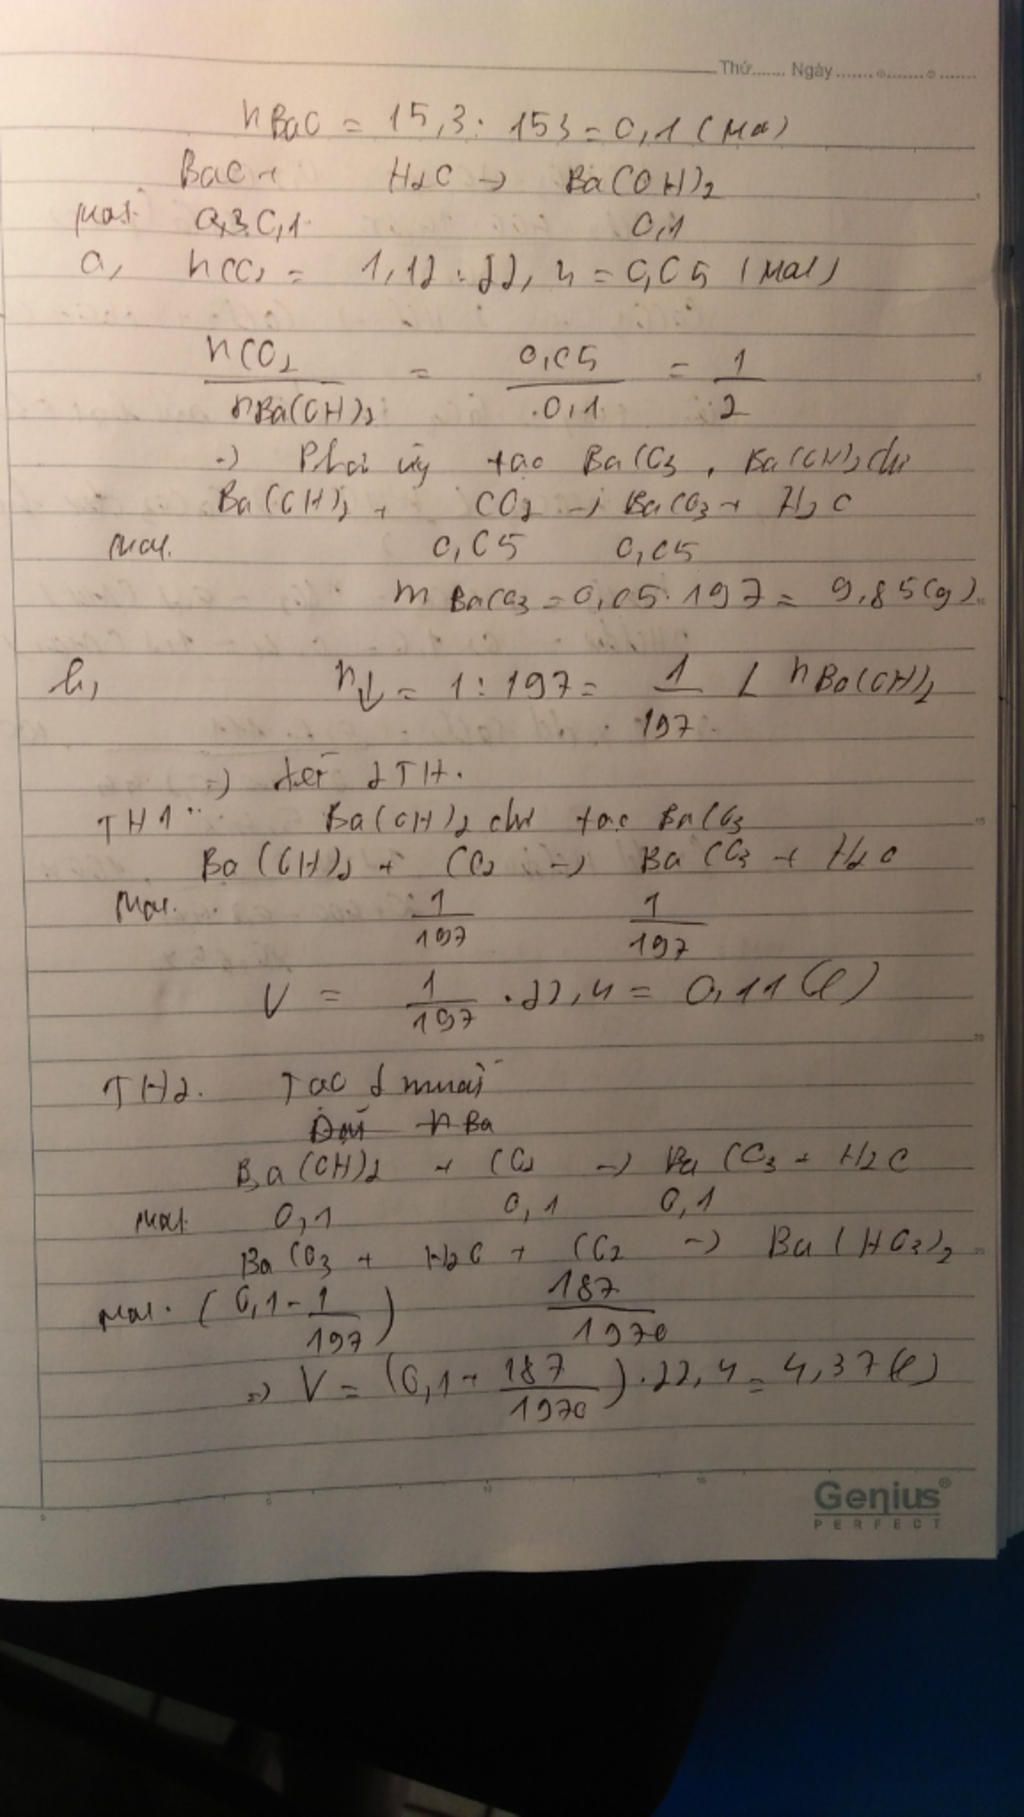 Thứ....... Ngày.......
nBaO = 15,3 : 153 = 0,1 (mol)
BaO + H2O → Ba(OH)2
mol: 0,1 0,1
a, nCO2 = 1,12 : 22,4 = 0,05 (mol)
nCO2 / nBa(OH)2 = 0,05 / 0,1 = 1/2
→ Phải ứng tạo BaCO3, Ba(OH)2 dư
Ba(OH)2 + CO2 → BaCO3 + H2O
mol. 0,05 0,05
m BaCO3 = 0,05 . 197 = 9,85 (g)
b, n↓ = 1 : 197 = 1/197 < nBa(OH)2
=) Xét 2TH.
TH1: Ba(OH)2 chỉ tạo BaCO3
Ba(OH)2 + CO2 → BaCO3 + H2O
mol. 1/197 1/197
V = 1/197 . 22,4 = 0,11 (l)
TH2. Tạo 2 muối
Ba
Ba(OH)2 + CO2 → BaCO3 + H2O
mol 0,1 0,1 0,1
BaCO3 + H2O + CO2 → Ba(HCO3)2
mol. (0,1 - 1/197) 187/1970
=) V = (0,1 + 187/1970) . 22,4 = 4,37 (l)
Genius®
PERFECT